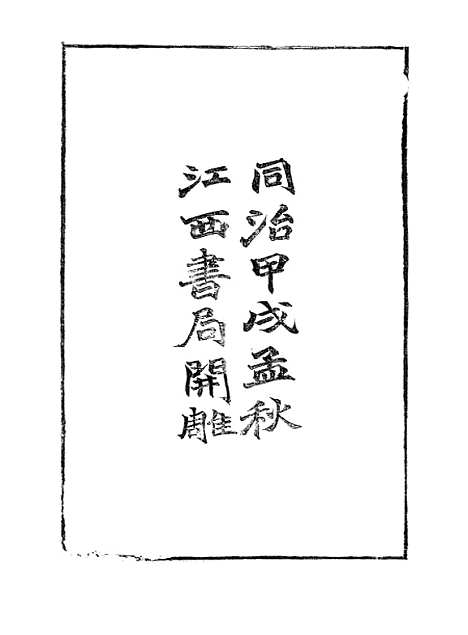 同治甲戌孟秋
江西書局開雕